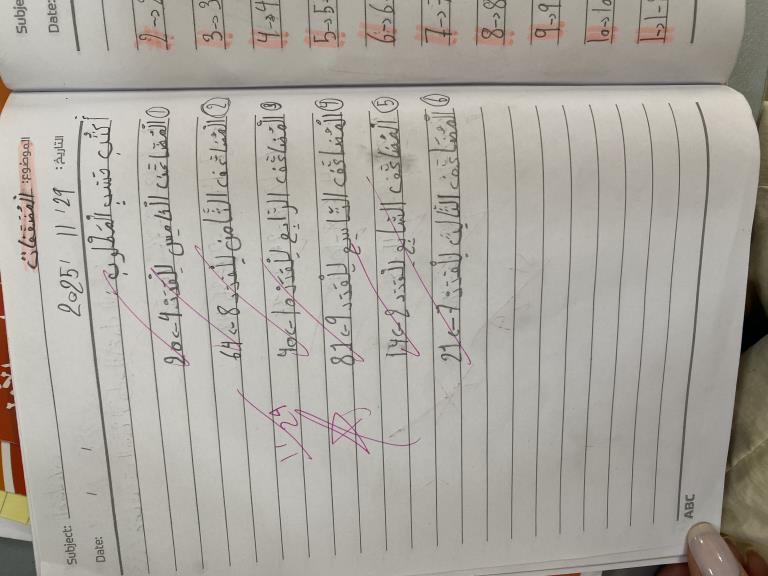 Subject:
Date:
2 → 2
3 → 3
4 → 4
5 → 5
6 →
7 →
8 → 8
9 → 9
10 → 10
Subject:
الموضوع: المضعفات
Date: / /
التاريخ: 29' 11' 2025
أكتب حسب المطلوب
① المضاعف الخامس للعدد 4 → 20
② المضاعف الثامن للعدد 8 → 64
③ المضاعف الرابع للعدد 10 → 40
④ المضاعف التاسع للعدد 9 → 81
⑤ المضاعف السابع للعدد 2 → 14
⑥ المضاعف الثالث للعدد 7 → 21
11/29
ABC